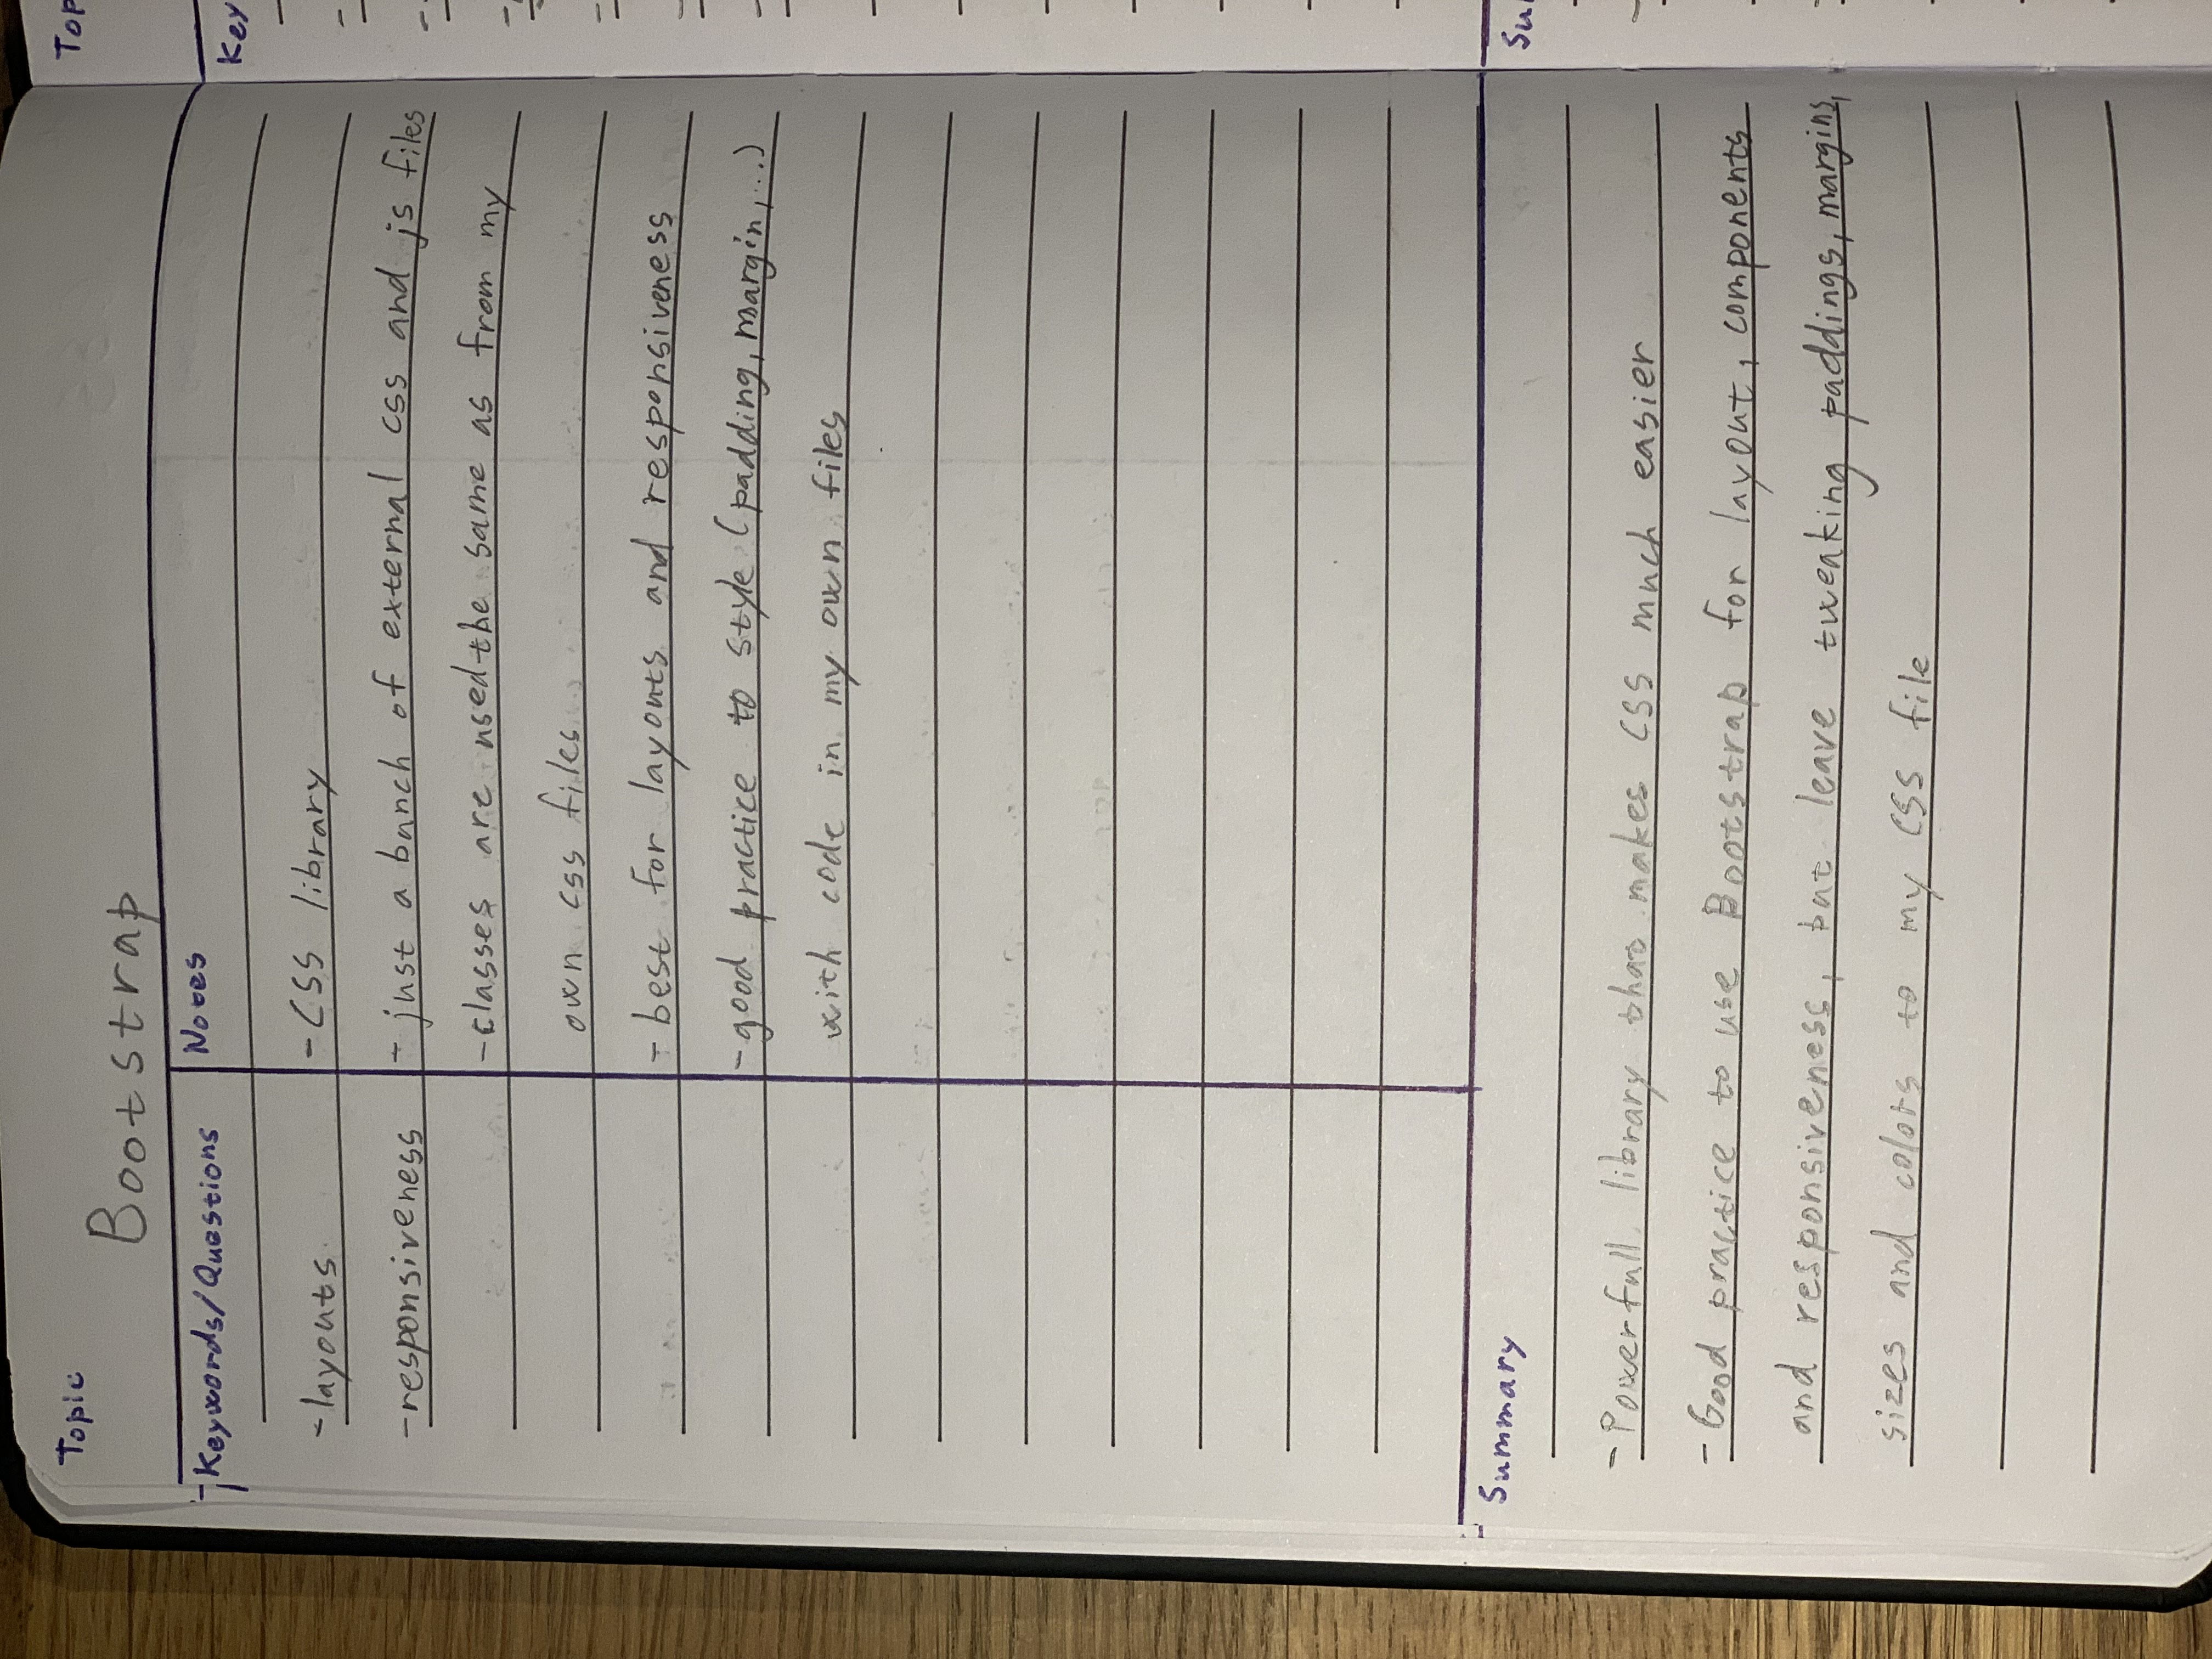 Topic
Bootstrap
Keywords/Questions
- layouts
- responsiveness
Notes
- CSS library
- just a bunch of external css and js files
- classes are used the same as from my
own css files
- best for layouts and responsiveness
- good practice to style (padding, margin, ...)
with code in my own files
Summary
- Powerfull library that makes CSS much easier
- Good practice to use Bootstrap for layout, components
and responsiveness, but leave tweaking paddings, margins,
sizes and colors to my CSS file
Top
Key
Su